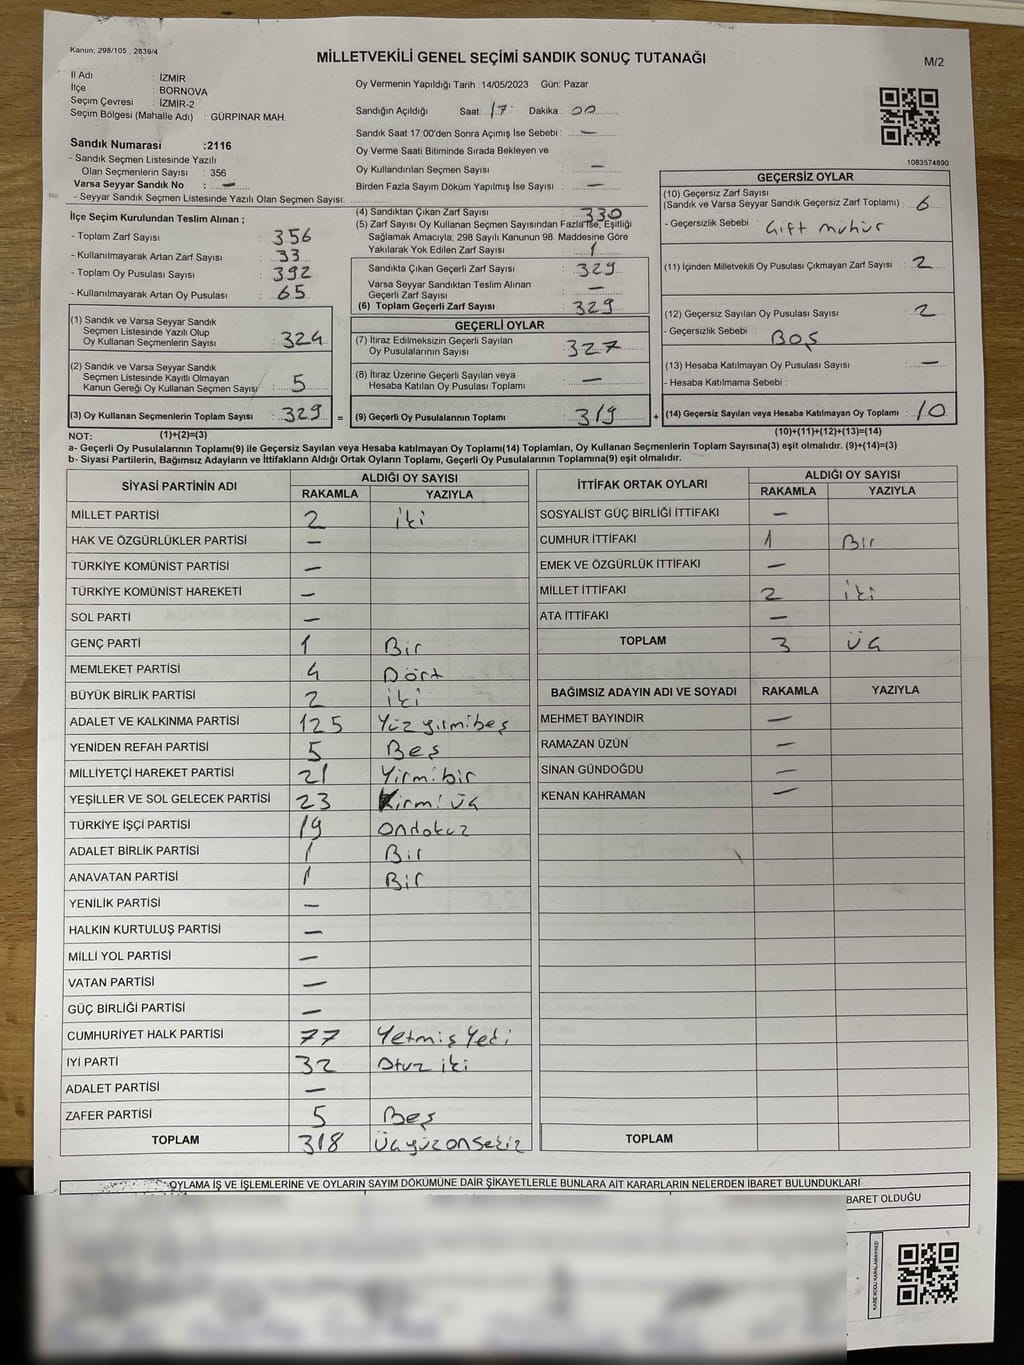 Kanun; 298/105 , 2839/4
MİLLETVEKİLİ GENEL SEÇİMİ SANDIK SONUÇ TUTANAĞI
M/2
İl Adı : İZMİR
İlçe : BORNOVA
Seçim Çevresi : İZMİR-2
Seçim Bölgesi (Mahalle Adı) : GÜRPINAR MAH.
Sandık Numarası :2116
- Sandık Seçmen Listesinde Yazılı
Olan Seçmenlerin Sayısı : 356
Varsa Seyyar Sandık No : —
- Seyyar Sandık Seçmen Listesinde Yazılı Olan Seçmen Sayısı:
Oy Vermenin Yapıldığı Tarih : 14/05/2023 Gün: Pazar
Sandığın Açıldığı Saat: 17 Dakika : 00
Sandık Saat 17:00'den Sonra Açımış İse Sebebi : —
Oy Verme Saati Bitiminde Sırada Bekleyen ve
Oy Kullandırılan Seçmen Sayısı : —
Birden Fazla Sayım Döküm Yapılmış İse Sayısı : —
1083574890
İlçe Seçim Kurulundan Teslim Alınan ;
- Toplam Zarf Sayısı : 356
- Kullanılmayarak Artan Zarf Sayısı : 33
- Toplam Oy Pusulası Sayısı : 392
- Kullanılmayarak Artan Oy Pusulası : 65
(1) Sandık ve Varsa Seyyar Sandık
Seçmen Listesinde Yazılı Olup
Oy Kullanan Seçmenlerin Sayısı : 324
(2) Sandık ve Varsa Seyyar Sandık
Seçmen Listesinde Kayıtlı Olmayan
Kanun Gereği Oy Kullanan Seçmen Sayısı : 5
(3) Oy Kullanan Seçmenlerin Toplam Sayısı : 329 =
(1)+(2)=(3)
(4) Sandıktan Çıkan Zarf Sayısı : 330
(5) Zarf Sayısı Oy Kullanan Seçmen Sayısından Fazla İse, Eşitliği
Sağlamak Amacıyla; 298 Sayılı Kanunun 98. Maddesine Göre
Yakılarak Yok Edilen Zarf Sayısı : 1
Sandıkta Çıkan Geçerli Zarf Sayısı : 329
Varsa Seyyar Sandıktan Teslim Alınan
Geçerli Zarf Sayısı : —
(6) Toplam Geçerli Zarf Sayısı : 329
GEÇERLİ OYLAR
(7) İtiraz Edilmeksizin Geçerli Sayılan
Oy Pusulalarının Sayısı : 327
(8) İtiraz Üzerine Geçerli Sayılan veya
Hesaba Katılan Oy Pusulası Toplamı : —
(9) Geçerli Oy Pusulalarının Toplamı : 319 +
GEÇERSİZ OYLAR
(10) Geçersiz Zarf Sayısı
(Sandık ve Varsa Seyyar Sandık Geçersiz Zarf Toplamı) : 6
- Geçersizlik Sebebi : Çift mühür
(11) İçinden Milletvekili Oy Pusulası Çıkmayan Zarf Sayısı : 2
(12) Geçersiz Sayılan Oy Pusulası Sayısı : 2
- Geçersizlik Sebebi : BOŞ
(13) Hesaba Katılmayan Oy Pusulası Sayısı : —
- Hesaba Katılmama Sebebi :
(14) Geçersiz Sayılan veya Hesaba Katılmayan Oy Toplamı : 10
(10)+(11)+(12)+(13)=(14)
NOT:
a- Geçerli Oy Pusulalarının Toplamı(9) ile Geçersiz Sayılan veya Hesaba katılmayan Oy Toplamı(14) Toplamları, Oy Kullanan Seçmenlerin Toplam Sayısına(3) eşit olmalıdır. (9)+(14)=(3)
b- Siyasi Partilerin, Bağımsız Adayların ve İttifakların Aldığı Ortak Oyların Toplamı, Geçerli Oy Pusulalarının Toplamına(9) eşit olmalıdır.
SİYASİ PARTİNİN ADI ALDIĞI OY SAYISI
RAKAMLA YAZIYLA
MİLLET PARTİSİ 2 iki
HAK VE ÖZGÜRLÜKLER PARTİSİ —
TÜRKİYE KOMÜNİST PARTİSİ —
TÜRKİYE KOMÜNİST HAREKETİ —
SOL PARTİ —
GENÇ PARTİ 1 Bir
MEMLEKET PARTİSİ 4 Dört
BÜYÜK BİRLİK PARTİSİ 2 iki
ADALET VE KALKINMA PARTİSİ 125 Yüz yirmibeş
YENİDEN REFAH PARTİSİ 5 Beş
MİLLİYETÇİ HAREKET PARTİSİ 21 Yirmibir
YEŞİLLER VE SOL GELECEK PARTİSİ 23 Yirmi üç
TÜRKİYE İŞÇİ PARTİSİ 19 Ondokuz
ADALET BİRLİK PARTİSİ 1 Bir
ANAVATAN PARTİSİ 1 Bir
YENİLİK PARTİSİ —
HALKIN KURTULUŞ PARTİSİ —
MİLLİ YOL PARTİSİ —
VATAN PARTİSİ —
GÜÇ BİRLİĞİ PARTİSİ —
CUMHURİYET HALK PARTİSİ 77 Yetmiş Yedi
İYİ PARTİ 32 Otuz iki
ADALET PARTİSİ —
ZAFER PARTİSİ 5 Beş
TOPLAM 318 Üçyüzonsekiz
İTTİFAK ORTAK OYLARI ALDIĞI OY SAYISI
RAKAMLA YAZIYLA
SOSYALİST GÜÇ BİRLİĞİ İTTİFAKI —
CUMHUR İTTİFAKI 1 Bir
EMEK VE ÖZGÜRLÜK İTTİFAKI —
MİLLET İTTİFAKI 2 iki
ATA İTTİFAKI —
TOPLAM 3 Üç
BAĞIMSIZ ADAYIN ADI VE SOYADI RAKAMLA YAZIYLA
MEHMET BAYINDIR —
RAMAZAN ÜZÜN —
SİNAN GÜNDOĞDU —
KENAN KAHRAMAN —
TOPLAM
OYLAMA İŞ VE İŞLEMLERİNE VE OYLARIN SAYIM DÖKÜMÜNE DAİR ŞİKAYETLERLE BUNLARA AİT KARARLARIN NELERDEN İBARET BULUNDUKLARI
BARET OLDUĞU
KARE KODU KARALAMAYINIZ!